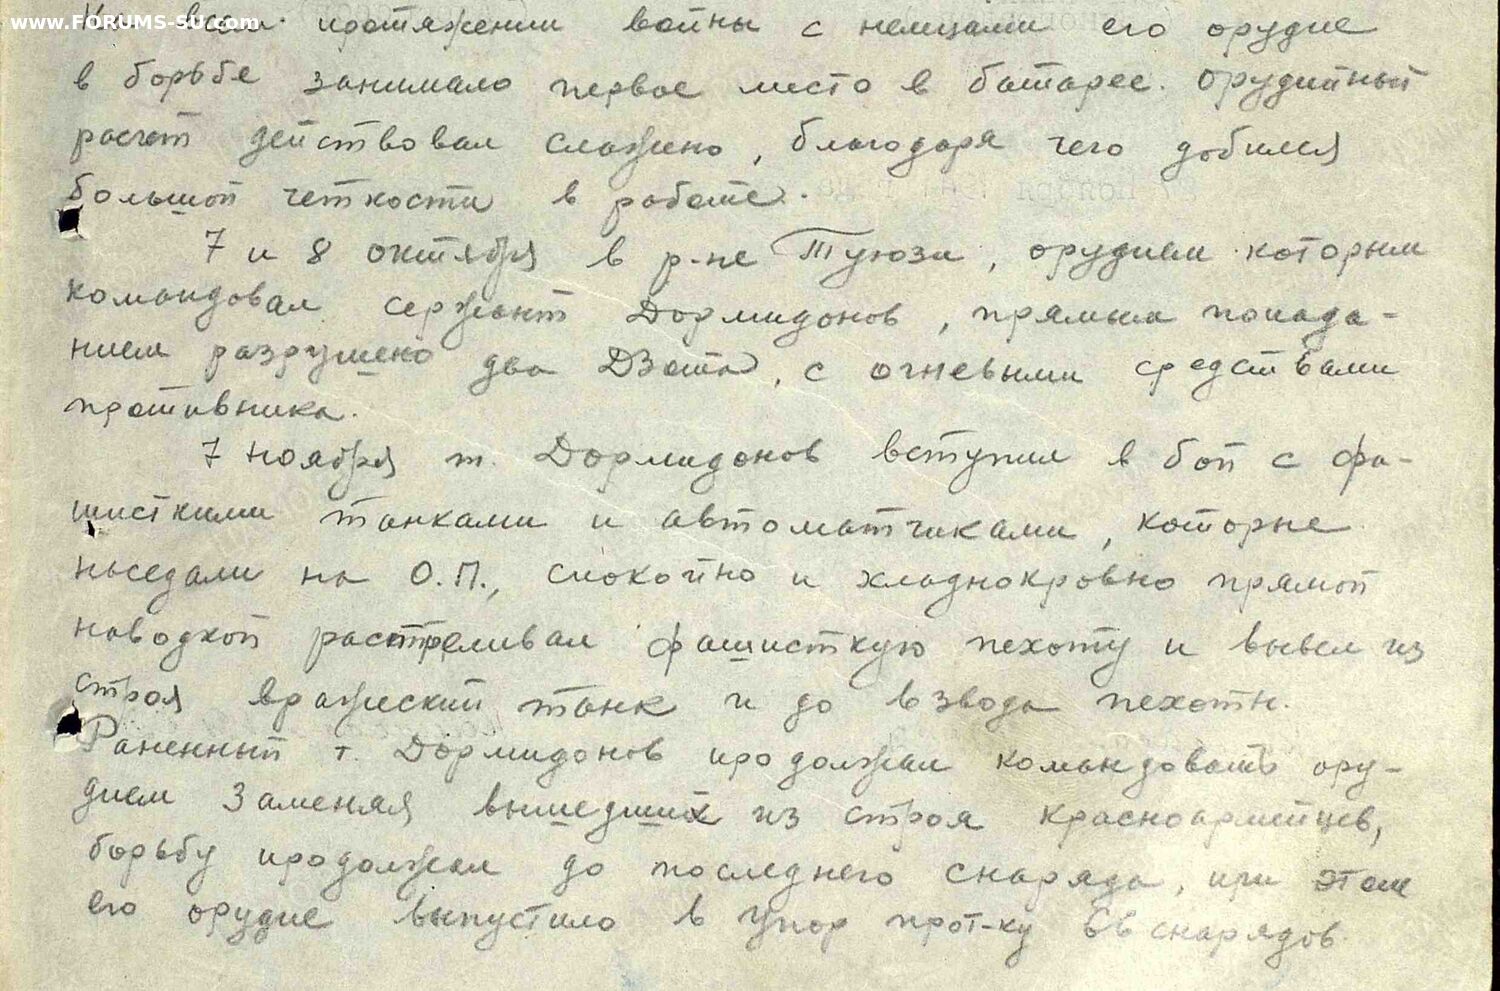 www.FORUMS-SU.com
На всем протяжении войны с немцами его орудие
в борьбе занимало первое место в батарее. Орудийный
расчет действовал слажено, благодаря чего добился
большой четкости в работе.
7 и 8 октября в р-не Туюзи, орудием которым
командовал сержант Дормидонов, прямым попада-
нием разрушено два ДЗота, с огневыми средствами
противника.
7 ноября т. Дормидонов вступил в бой с фа-
шисткими танками и автоматчиками, которые
наседали на О.П., спокойно и хладнокровно прямой
наводкой расстреливал фашисткую пехоту и вывел из
строя вражеский танк и до взвода пехоты.
Раненный т. Дормидонов продолжал командовать ору-
дием заменяя вышедших из строя красноармейцев,
борьбу продолжал до последнего снаряда, при этом
его орудие выпустило в упор прот-ку снарядов